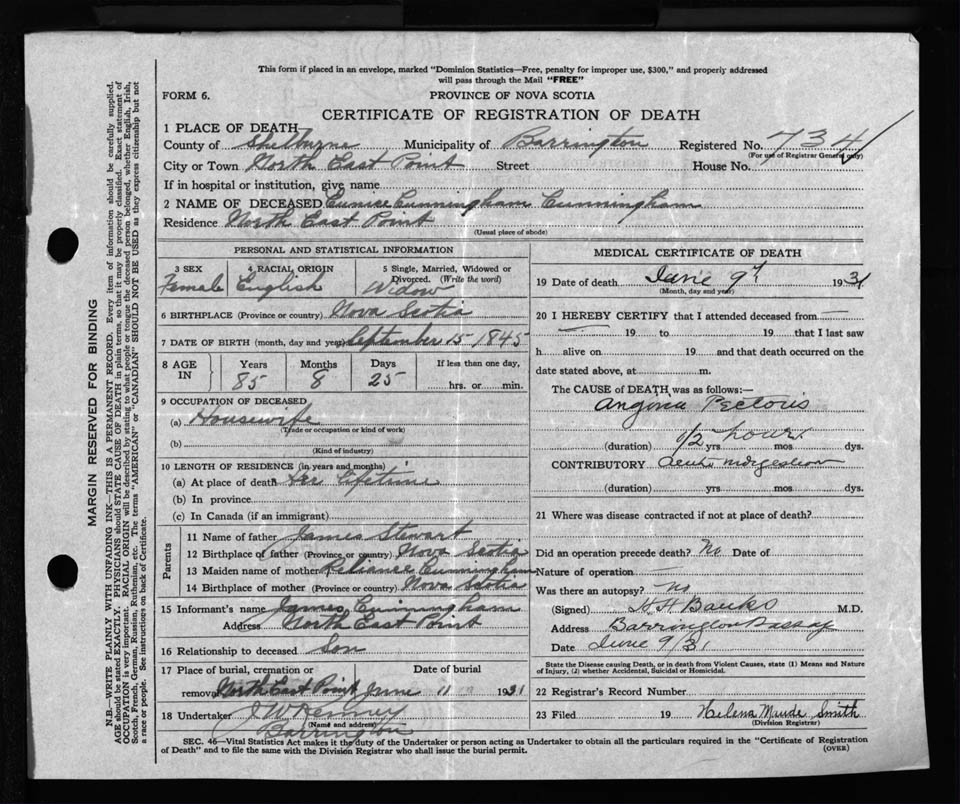 This form if placed in an envelope, marked "Dominion Statistics—Free, penalty for improper use, $300," and properly addressed
will pass through the Mail "FREE"
FORM 6.
PROVINCE OF NOVA SCOTIA
CERTIFICATE OF REGISTRATION OF DEATH
1 PLACE OF DEATH
County of Shelburne Municipality of Barrington Registered No. 734
(For use of Registrar General only)
City or Town North East Point Street House No.
If in hospital or institution, give name
2 NAME OF DECEASED Eunice Cunningham Cunningham
Residence North East Point
(Usual place of abode)
PERSONAL AND STATISTICAL INFORMATION
3 SEX 4 RACIAL ORIGIN 5 Single, Married, Widowed or
Divorced. (Write the word)
Female English Widow
6 BIRTHPLACE (Province or country) Nova Scotia
7 DATE OF BIRTH (month, day and year) September 15 1845
8 AGE IN Years Months Days If less than one day,
85 8 25 hrs. or min.
9 OCCUPATION OF DECEASED
(a) Housewife
(Trade or occupation or kind of work)
(b)
(Kind of industry)
10 LENGTH OF RESIDENCE (in years and months)
(a) At place of death Her Lifetime
(b) In province
(c) In Canada (if an immigrant)
Parents
11 Name of father James Stewart
12 Birthplace of father (Province or country) Nova Scotia
13 Maiden name of mother Reliance Cunningham
14 Birthplace of mother (Province or country) Nova Scotia
15 Informant's name James Cunningham
Address North East Point
16 Relationship to deceased Son
17 Place of burial, cremation or Date of burial
removal North East Point June 11 1931
18 Undertaker J W Kenney
(Name and address)
Barrington
MEDICAL CERTIFICATE OF DEATH
19 Date of death June 9th 1931
(Month, day and year)
20 I HEREBY CERTIFY that I attended deceased from
19 to 19 that I last saw
h alive on 19 and that death occurred on the
date stated above, at m.
The CAUSE of DEATH was as follows:—
Angina Pectoris
1/2 hour
(duration) yrs mos dys.
CONTRIBUTORY Acute indigestion
(duration) yrs mos dys.
21 Where was disease contracted if not at place of death?
Did an operation precede death? No Date of
Nature of operation —
Was there an autopsy? No
(Signed) H H Banks M.D.
Address Barrington Passage
Date June 9/31
State the Disease causing Death, or in death from Violent Causes, state (1) Means and Nature
of Injury, (2) whether Accidental, Suicidal or Homicidal.
22 Registrar's Record Number
23 Filed 19 Helena Maude Smith
(Division Registrar)
SEC. 46—Vital Statistics Act makes it the duty of the Undertaker or person acting as Undertaker to obtain all the particulars required in the "Certificate of Registration
of Death" and to file the same with the Division Registrar who shall issue the burial permit.
(OVER)
MARGIN RESERVED FOR BINDING
N.B.—WRITE PLAINLY WITH UNFADING INK—THIS IS A PERMANENT RECORD. Every item of information should be carefully supplied.
AGE should be stated EXACTLY. PHYSICIANS should STATE CAUSE OF DEATH in plain terms, so that it may be properly classified. Exact statement of
OCCUPATION is very important. RACIAL ORIGIN will be described by stating to what people or tongue the deceased person belonged, whether English, Irish,
Scotch, French, German, Russian, Ruthenian, etc. The terms "AMERICAN" or "CANADIAN" SHOULD NOT BE USED as they express citizenship but not
a race or people. See instructions on back of Certificate.